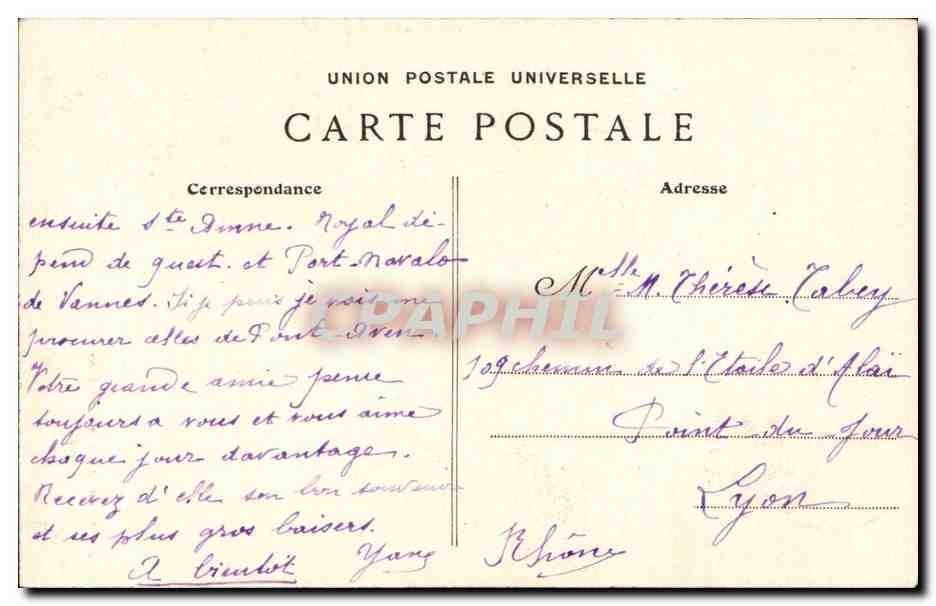 UNION POSTALE UNIVERSELLE
CARTE POSTALE
Correspondance
ensuite Ste Anne. Royal dé-
pend de guest. et Port-Navalo
de Vannes. Si je puis je vois me
procurer celles de Pont-Aven
Votre grande amie pense
toujours a vous et vous aime
chaque jour davantage.
Recevez d'elle son bon souvenir
et ses plus gros baisers.
A bientôt
Adresse
Melle M. Thérèse Tabey
109 chemin de l'Etoile d'Alaï
Point du Jour
Lyon
Rhône
CPAPHIL